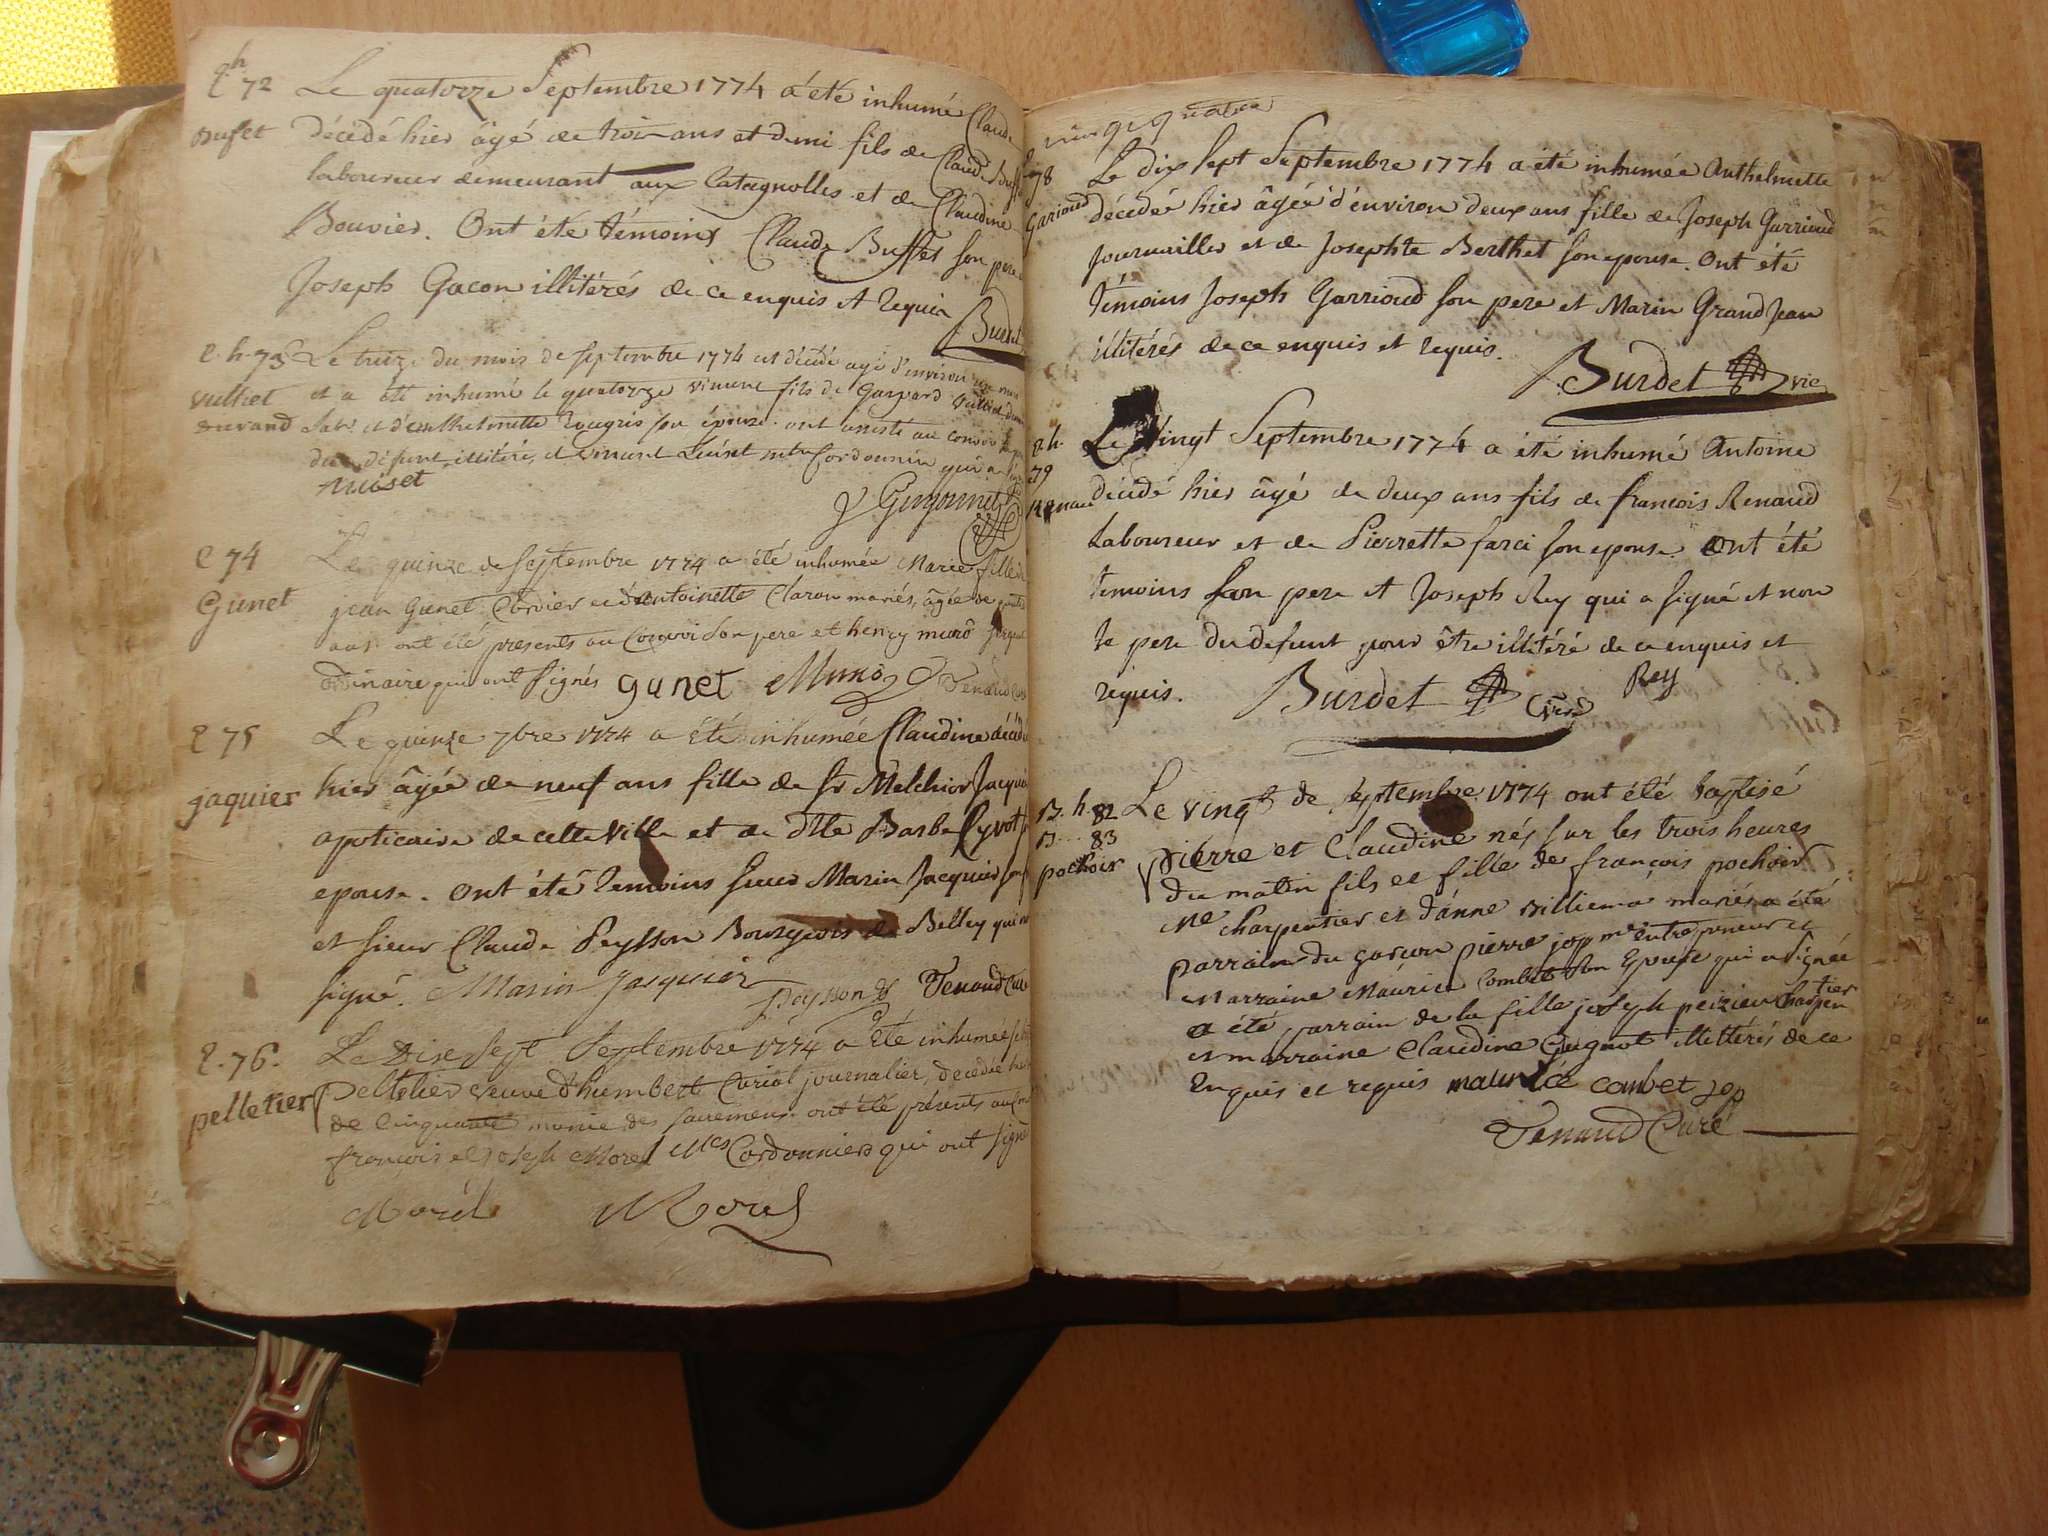 E.h 72
Buffet
Le quatorze Septembre 1774 a été inhumé Claude
décédé hier âgé de trois ans et demi fils de Claude Buffet
laboureur demeurant aux Catagnolles et de Claudine
Bouvier. Ont été témoins Claude Buffet son pere
Joseph Gacon illitérés de ce enquis et requis
Burdet
E.h. 73
Vulliet
Durand
Le treize du mois de septembre 1774 est décédé agé d'environ
et a été inhumé le quatorze vincent fils de Gaspard
et d'anthelmette son épouse. ont assisté au convoi
du défunt illitéré, et vincent cordonnier qui a
Guyonnet
E 74
Gunet
Le quinze de septembre 1774 a été inhumée Marie fille de
jean Gunet Cordier et d'antoinette Claron mariés, âgée de
ans. ont été presents au Convoi son pere et henry
ordinaire qui ont signés gunet Muno Tenand Curé
E 75
jaquier
Le quinze 7bre 1774 a été inhumée Claudine décédée
hier âgée de neuf ans fille de Sr Melchior Jacquier
apoticaire de cette ville et de dlle Barbe Pyvot
epouse. Ont été temoins sieur Marin Jacquier
et sieur Claude Peysson Bourgeois de Belley qui
signé. Marin Jacquier Peysson Tenand Curé
E. 76.
pelletier
Le Dixe Sept Septembre 1774 a été inhumée
Pelletier veuve d'humbert Curial journalier, decedée hier
de Cinquante munie des sacremens. ont été présents au
françois et joseph Morel Mes Cordonniers qui ont signé
Morel Morel
vingt quatre
E.h 78
Garioud
Le dix sept Septembre 1774 a été inhumée Anthelmette
décédée hier âgée d'environ deux ans fille de Joseph Garrioud
Journailler et de Josephte Berthet son epouse. Ont été
témoins Joseph Garrioud son pere et Marin Grand Jean
illitérés de ce enquis et requis.
Burdet vic
E h.
79
Renaud
Le Vingt Septembre 1774 a été inhumé Antoine
décédé hier âgé de deux ans fils de françois Renaud
Laboureur et de Pierrette farci son epouse. Ont été
temoins son pere et Joseph Rey qui a signé et non
le pere du defunt pour être illitéré de ce enquis et
requis. Burdet vire Rey
B. h. 82
B.... 83
pochoir
Le vingt de septembre 1774 ont été baptisé
pierre et Claudine nés sur les trois heures
du matin fils et fille de françois pochoir
Me charpentier et d'anne Billiema mariés a été
parrain du garçon pierre jop me entrepreneur et
marraine Maurice Combet son Epouse qui a signée
a été parrain de la fille joseph peizieu charpentier
et marraine Claudine Cugnot illettérés de ce
Enquis et requis maurice combet jop
Tenand Curé